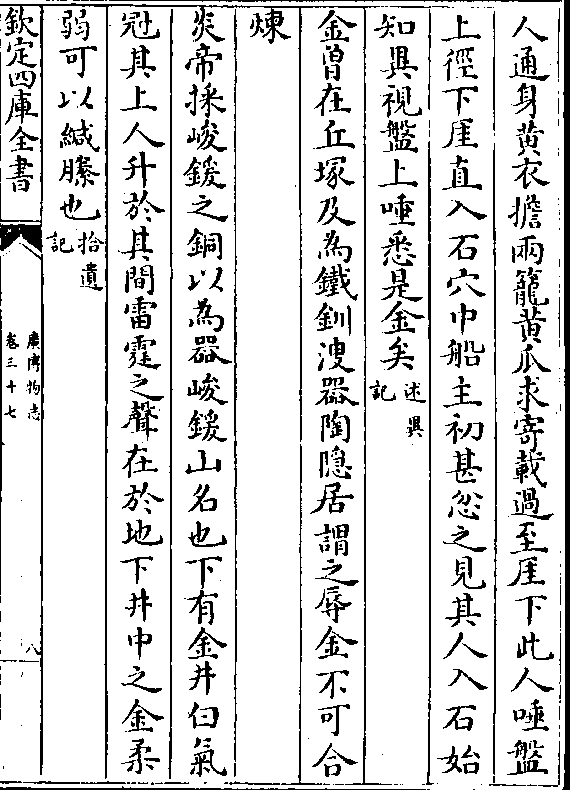 人通身黄衣擔兩籠黄瓜求寄載過至厓下此人唾盤
上徑下厓直入石穴中船主初甚忿之見其人入石始
知異視盤上唾悉是金矣述異記
金曾在丘塚及為鐵釧溲器陶隠居謂之辱金不可合
煉
炎帝採峻鍰之銅以為器峻鍰山名也下有金井白氣
冠其上人升於其間雷霆之聲在於地下井中之金柔
弱可以緘縢也拾遺記
欽定四庫全書
廣博物志
卷三十七
八